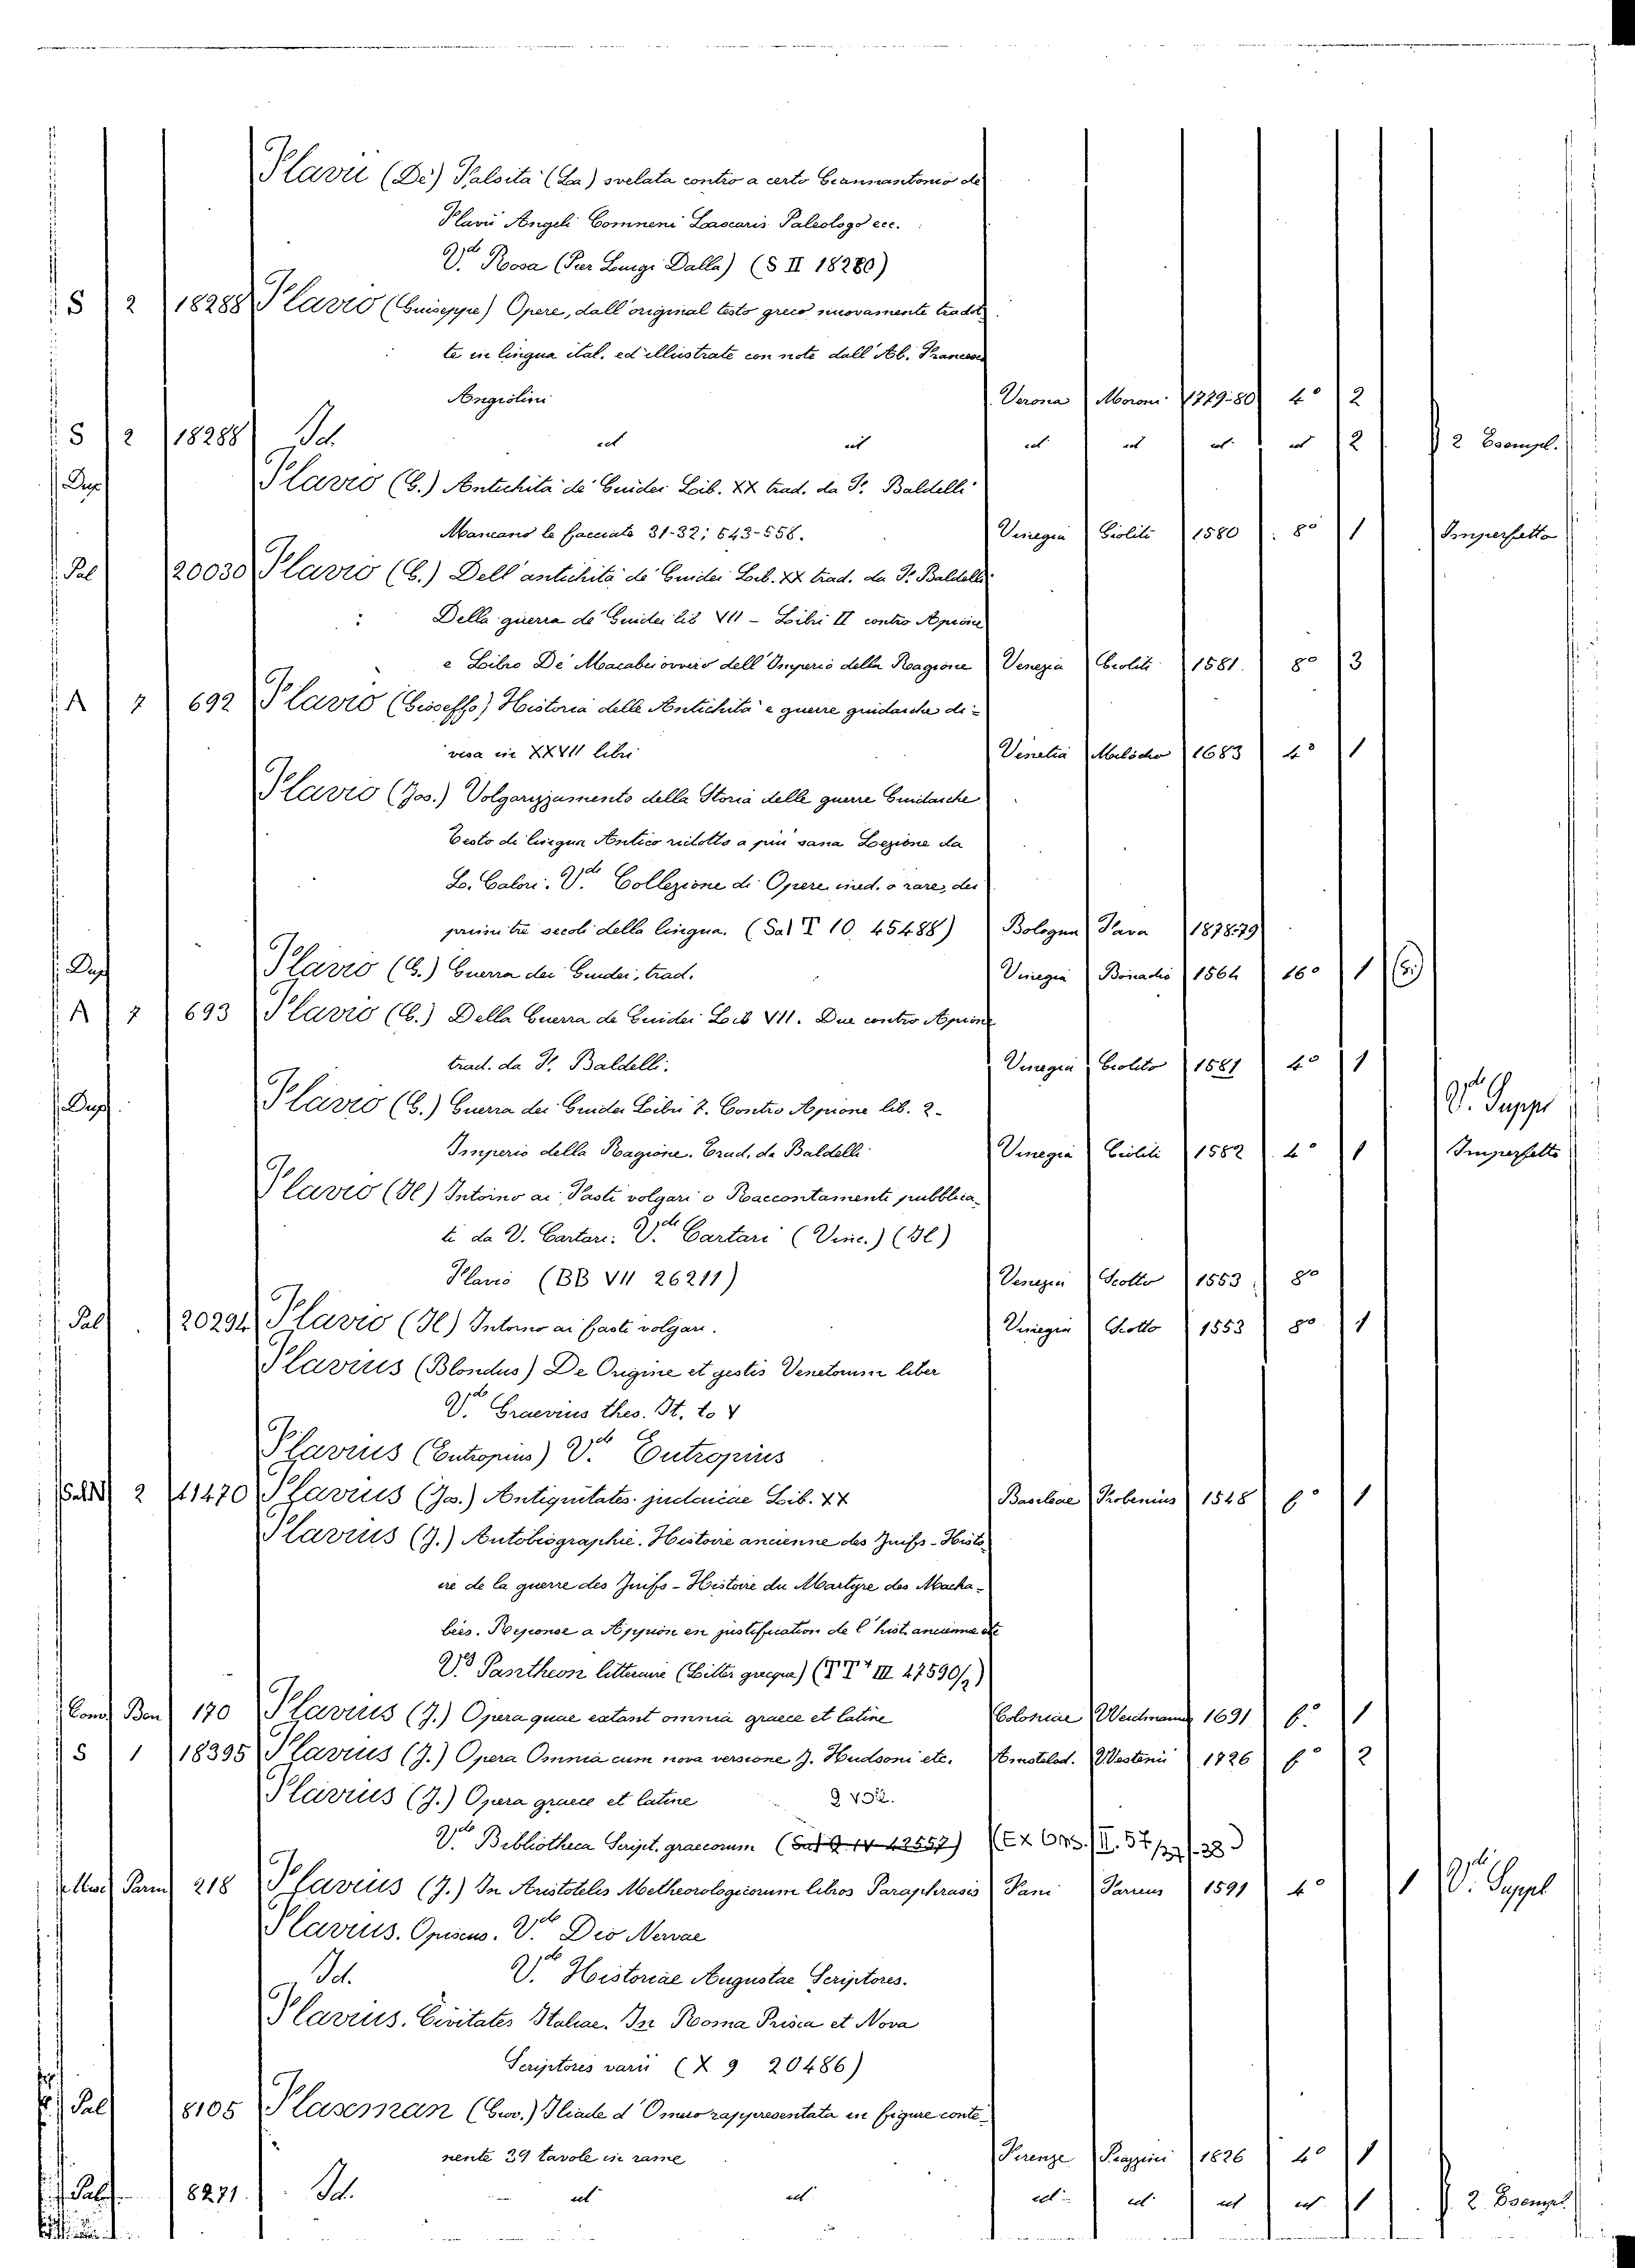 Flavii (De) Falsita (La) svelata contro a certo Giannantonio de
Flavii Angeli Comneni Lascaris Paleologo ecc.
Vde Rosa (Pier Luigi Dalla) (S II 18280)
S 2 18288 Flavio (Guiseppe) Opere, dall'original testo greco nuovamente tradot
te in lingua ital. ed illustrate con note dall'Ab. Francesco
Angiolini Verona Moroni 1779-80 4° 2
S 2 18288 Id. id id id id id id 2 2 Esempl.
Dup Flavio (G.) Antichità de' Guidei Lib. XX trad. da F. Baldelli
Mancano le facciate 31-32; 543-558. Vinegia Gioliti 1580 8° 1 Imperfetto
Pal 20030 Flavio (G.) Dell'antichità de' Guidei Lib. XX trad. da F. Baldelli
Della guerra de' Guidei lib VII - Libri II contro Apione
e Libro De' Macabei ovvero dell'Imperio della Ragione Venezia Gioliti 1581. 8° 3
A 7 692 Flavio (Gioseffo) Historia delle Antichità e guerre guidaiche di-
visa in XXVII libri Venetia Milocho 1683 4° 1
Flavio (Jos.) Volgarizzamento della Storia delle guerre Guidaiche
Testo di lingua Antico ridotto a più sana Lezione da
L. Calori. Vde Collezione di Opere ined. o rare, dei
primi tre secoli della lingua. (Sal T 10. 45488) Bologna Fava 1878-79
Dup Flavio (G.) Guerra dei Guidei, trad. Vinegia Bonadio 1564 16° 1
A 7 693 Flavio (G.) Della Guerra de Guidei Lib VII. Due contro Apione
trad. da F. Baldelli. Vinegia Giolito 1581 4° 1
Dup Flavio (G.) Guerra dei Guidei Libri 7. Contro Apione lib. 2. Vde Supp
Imperio della Ragione. Trad. da Baldelli Vinegia Gioliti 1582 4° 1 Imperfetto
Flavio (Il) Intorno ai Fasti volgari o Raccontamenti pubblica-
ti da V. Cartari. Vde Cartari (Vinc.) (Il)
Flavio (BB VII 26211) Venezia Scotto 1553 8°
Pal 20294 Flavio (Il) Intorno ai fasti volgari. Vinegia Scotto 1553 8° 1
Flavius (Blondus) De Origine et gestis Venetorum liber
Vde Graevius thes. It. to V
Flavius (Eutropius) Vde Eutropius
2 41470 Flavius (Jos.) Antiquitates judaicae Lib. XX Basileae Frobenius 1548 f° 1
Flavius (J.) Autobiographie. Histoire ancienne des Juifs - Histo-
ire de la guerre des Juifs - Histoire du Martyre des Macha-
bées. Reponse a Appion en justification de l'hist. ancienne etc
Vde Pantheon litteraire (Litter grecque) (TT4 III 47590/2)
Com Ben 170 Flavius (J.) Opera quae extant omnia graece et latine Coloniae Weidmanns 1691 f° 1
S 1 18395 Flavius (J.) Opera Omnia cum nova versione J. Hudsoni etc. Amstelod. Westenii 1726 f° 2
Flavius (J.) Opera graece et latine 2 vol.
Vde Bibliotheca Script. graecorum (Sal Q. IV 42557) (Ex Ons. II. 57/37-38)
Misc Parm 218 Flavius (J.) In Aristotelis Metheorologicorum libros Paraphrasis Fani Farreus 1591 4° 1 Vde Suppl
Flavius. Opiscus. Vde Dio Nervae
Id. Vde Historiae Augustae Scriptores.
Flavius. Civitates Italiae. In Roma Prisca et Nova
Scriptores varii (X 9 20486)
Pal 8105 Flaxman (Giov.) Iliade d'Omero rappresentata in figure conte-
nente 39 tavole in rame Firenze Piazzini 1826 4° 1
Pal 8271. Id. id id id id id id 1 2. Esempl